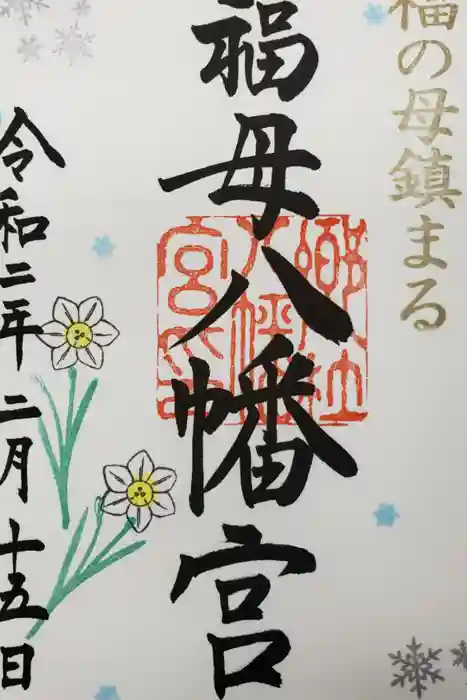 福の母鎮まる
福母八幡宮
令和二年二月十五日